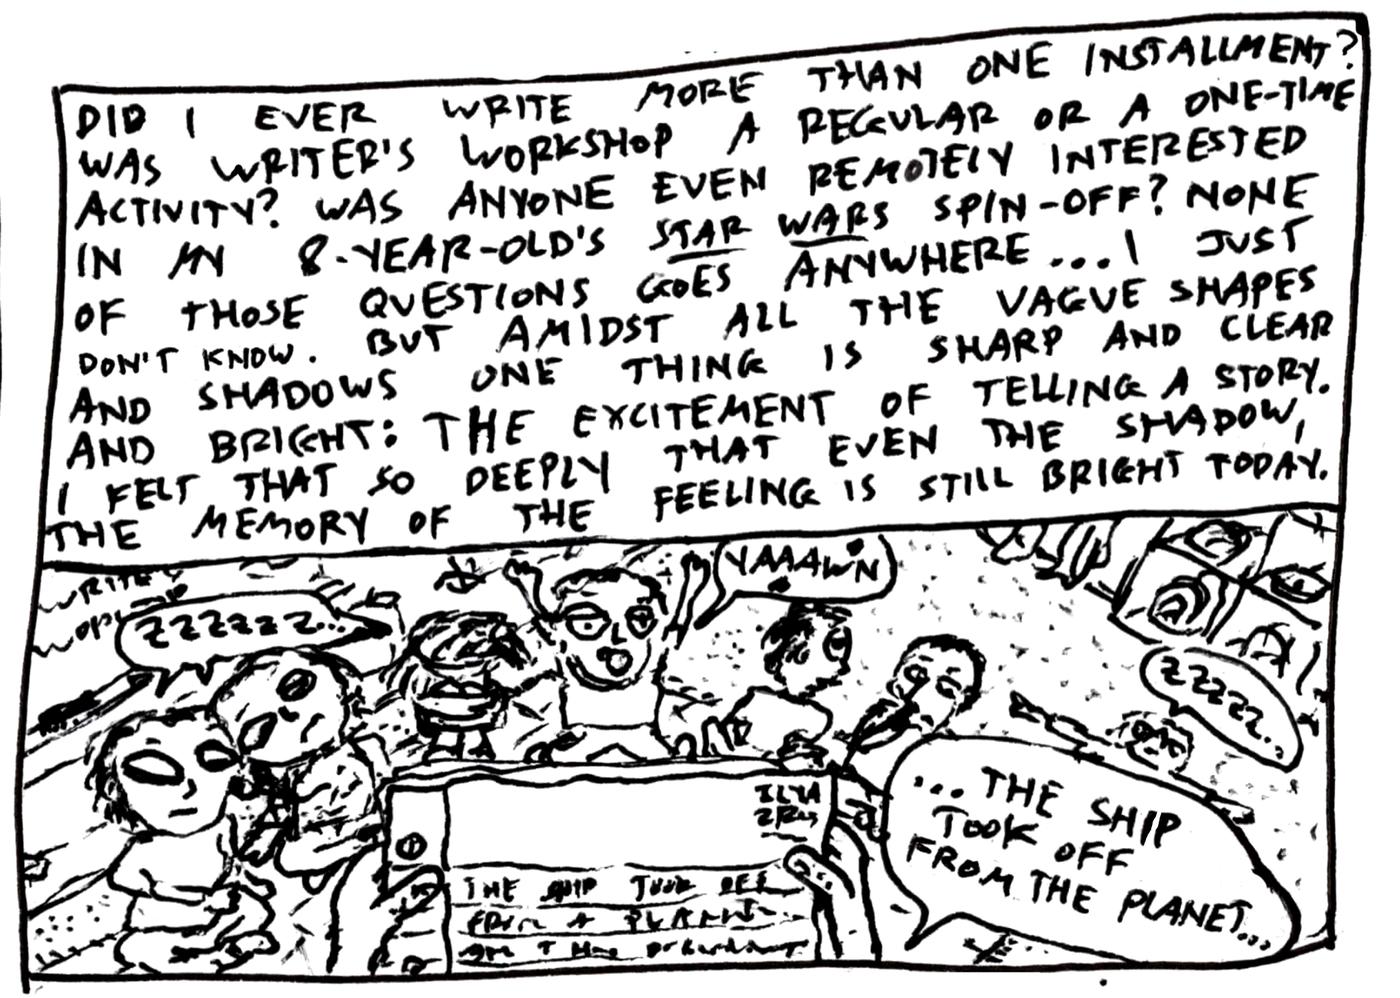 DID I EVER WRITE MORE THAN ONE INSTALLMENT?
WAS WRITER'S WORKSHOP A REGULAR OR A ONE-TIME
ACTIVITY? WAS ANYONE EVEN REMOTELY INTERESTED
IN MY 8-YEAR-OLD'S STAR WARS SPIN-OFF? NONE
OF THOSE QUESTIONS GOES ANYWHERE...I JUST
DON'T KNOW. BUT AMIDST ALL THE VAGUE SHAPES
AND SHADOWS ONE THING IS SHARP AND CLEAR
AND BRIGHT: THE EXCITEMENT OF TELLING A STORY.
I FELT THAT SO DEEPLY THAT EVEN THE SHADOW,
THE MEMORY OF THE FEELING IS STILL BRIGHT TODAY.
YAAAWN
ZZZZZZ...
ZZZZZ..
...THE SHIP
TOOK OFF
FROM THE PLANET...
ILYA
THE SHIP TOOK OFF